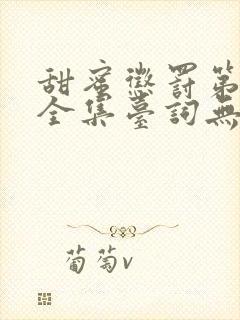 甜蜜懲罰第
全集臺詞無
葡萄v